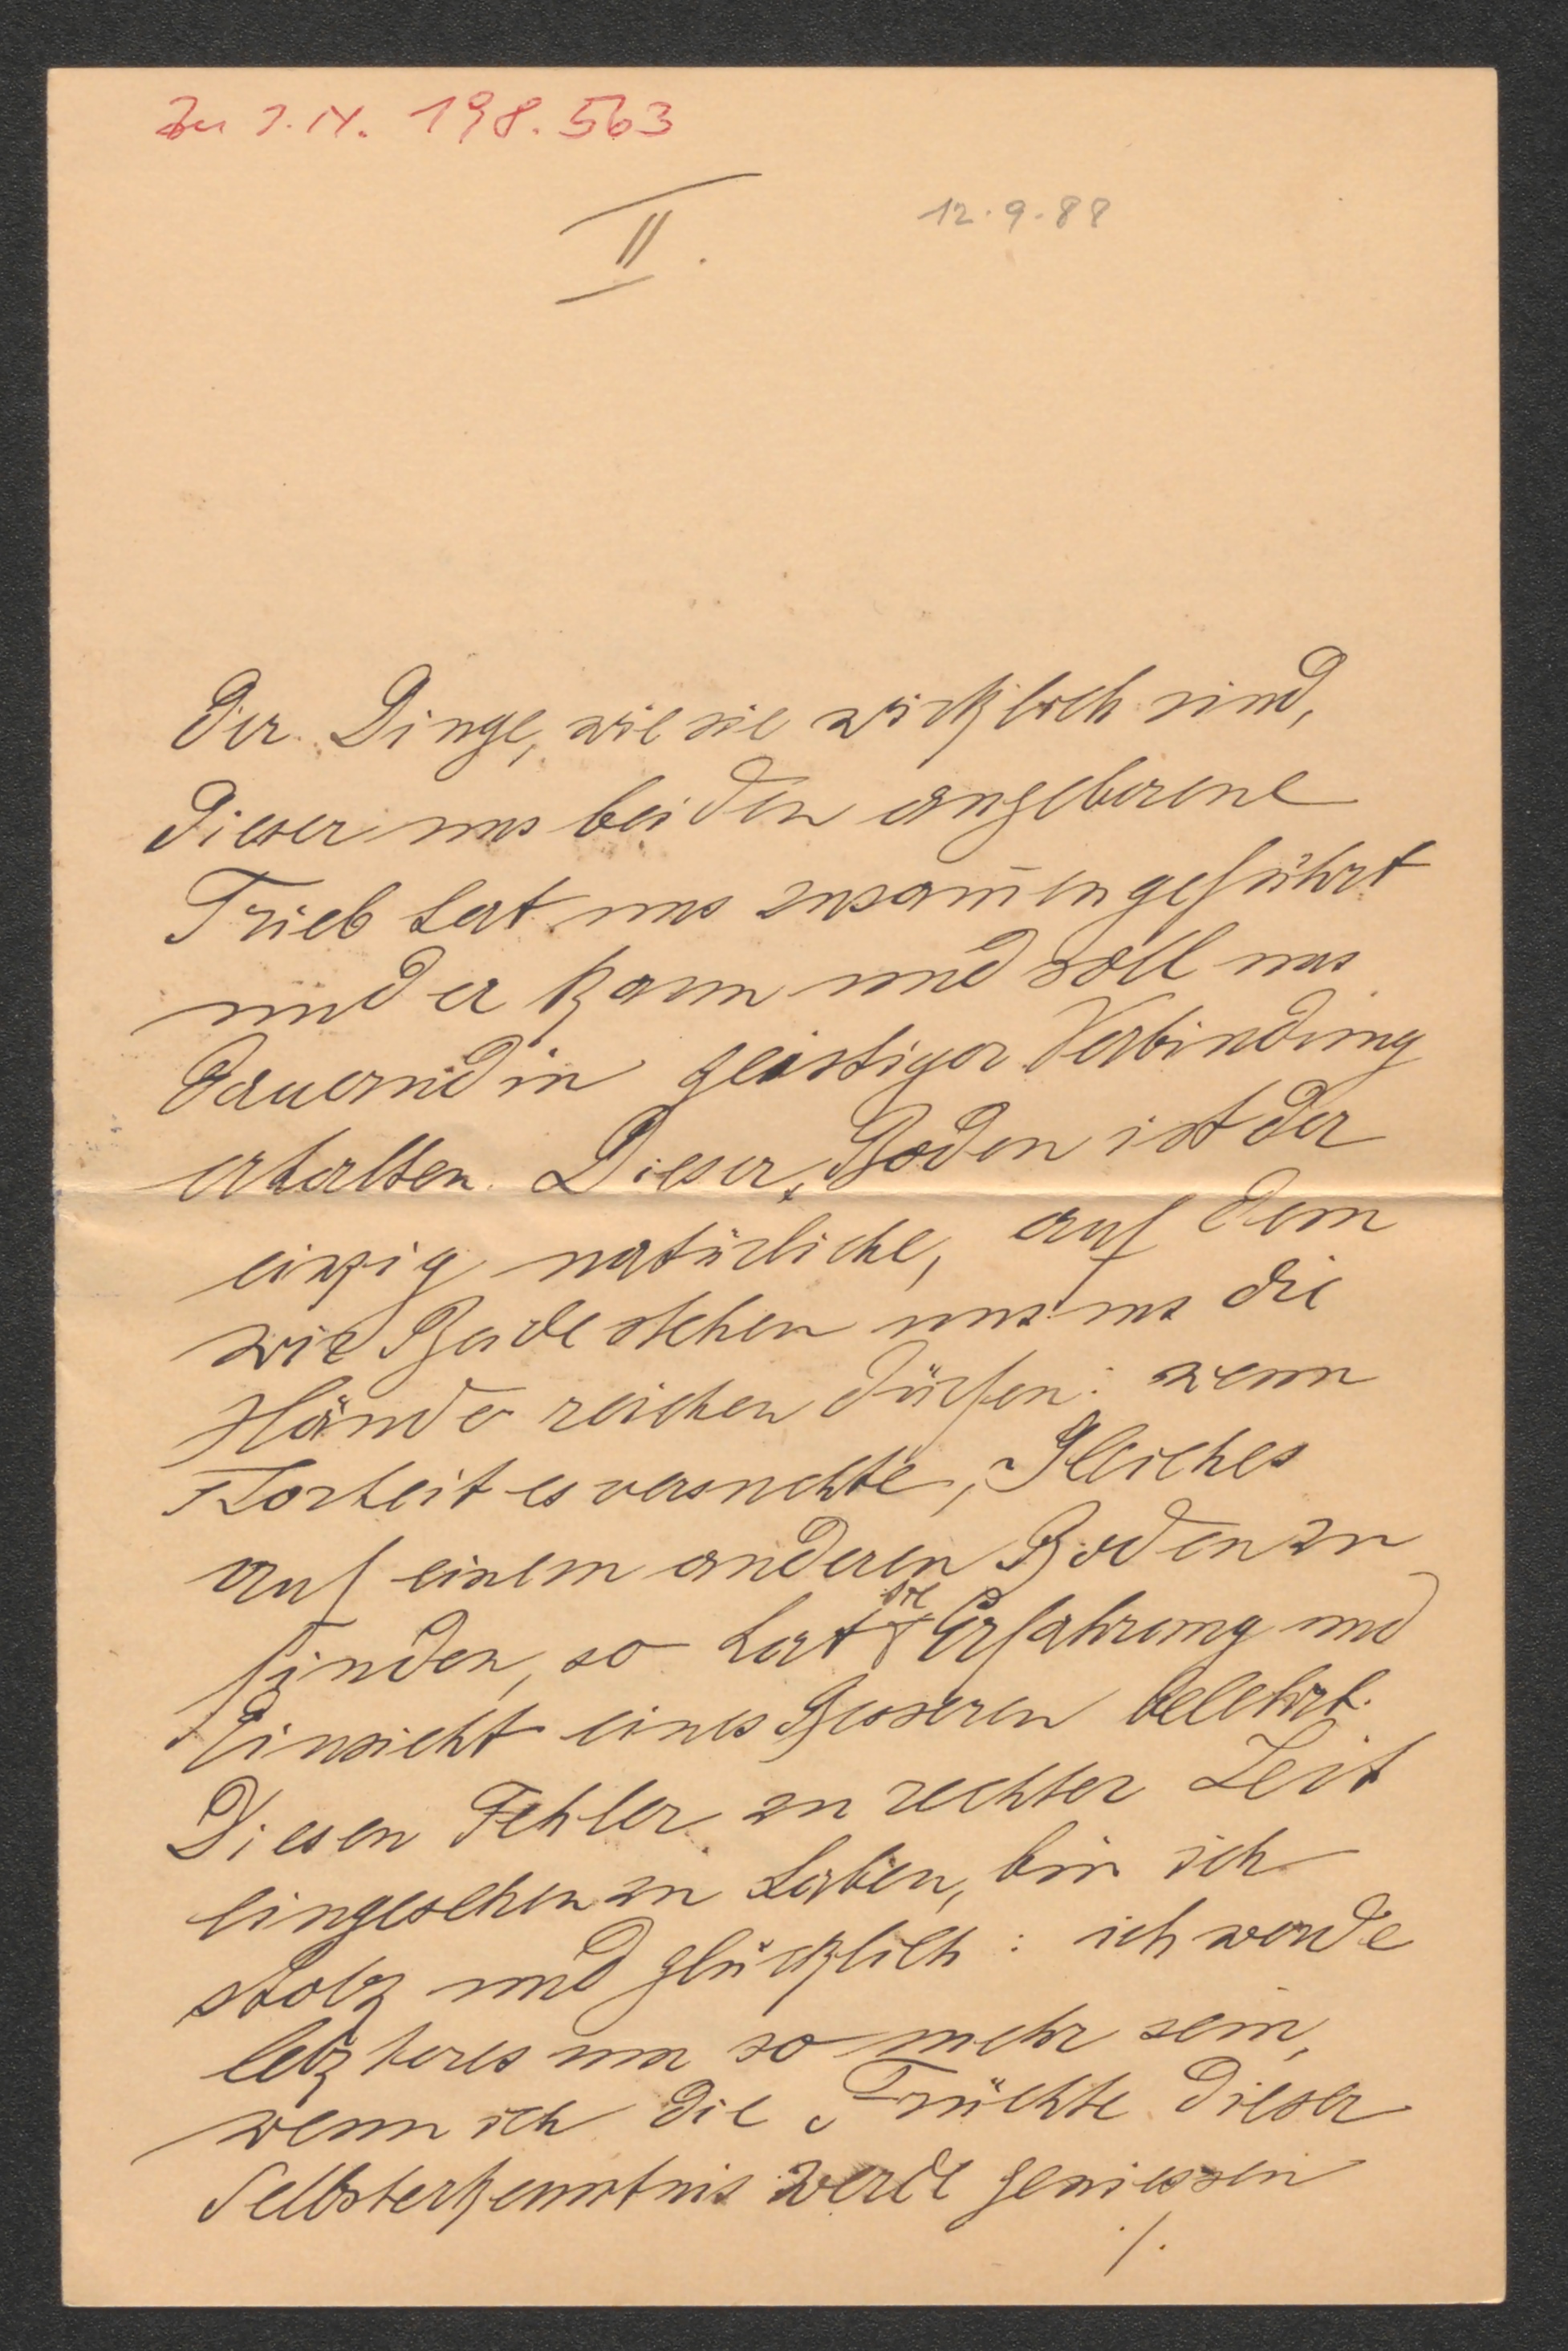 Zu I.N. 198.563
II.
12.9.88
der Dinge, wie sie wirklich sind,
dieser uns beiden angeborene
Trieb hat uns zusam̅engeführt
und er kann und soll uns
dauernd in geistiger Verbindung
erhalten. Dieser Boden ist der
einzig natürliche, auf dem
wir Beide stehen uns die
Hände reichen dürfen: wenn
Torheit es versuchte, Gleiches
auf einem anderen Boden zu
finden, so hat die Erfahrung und
Einsicht eines Besseren belehrt.
Diesen Fehler zu rechter Zeit
eingesehen zu haben, bin ich
stolz und glücklich: ich werde
letzteres um so mehr sein,
wenn ich die Früchte dieser
Selbsterkenntnis werde geniessen
./.